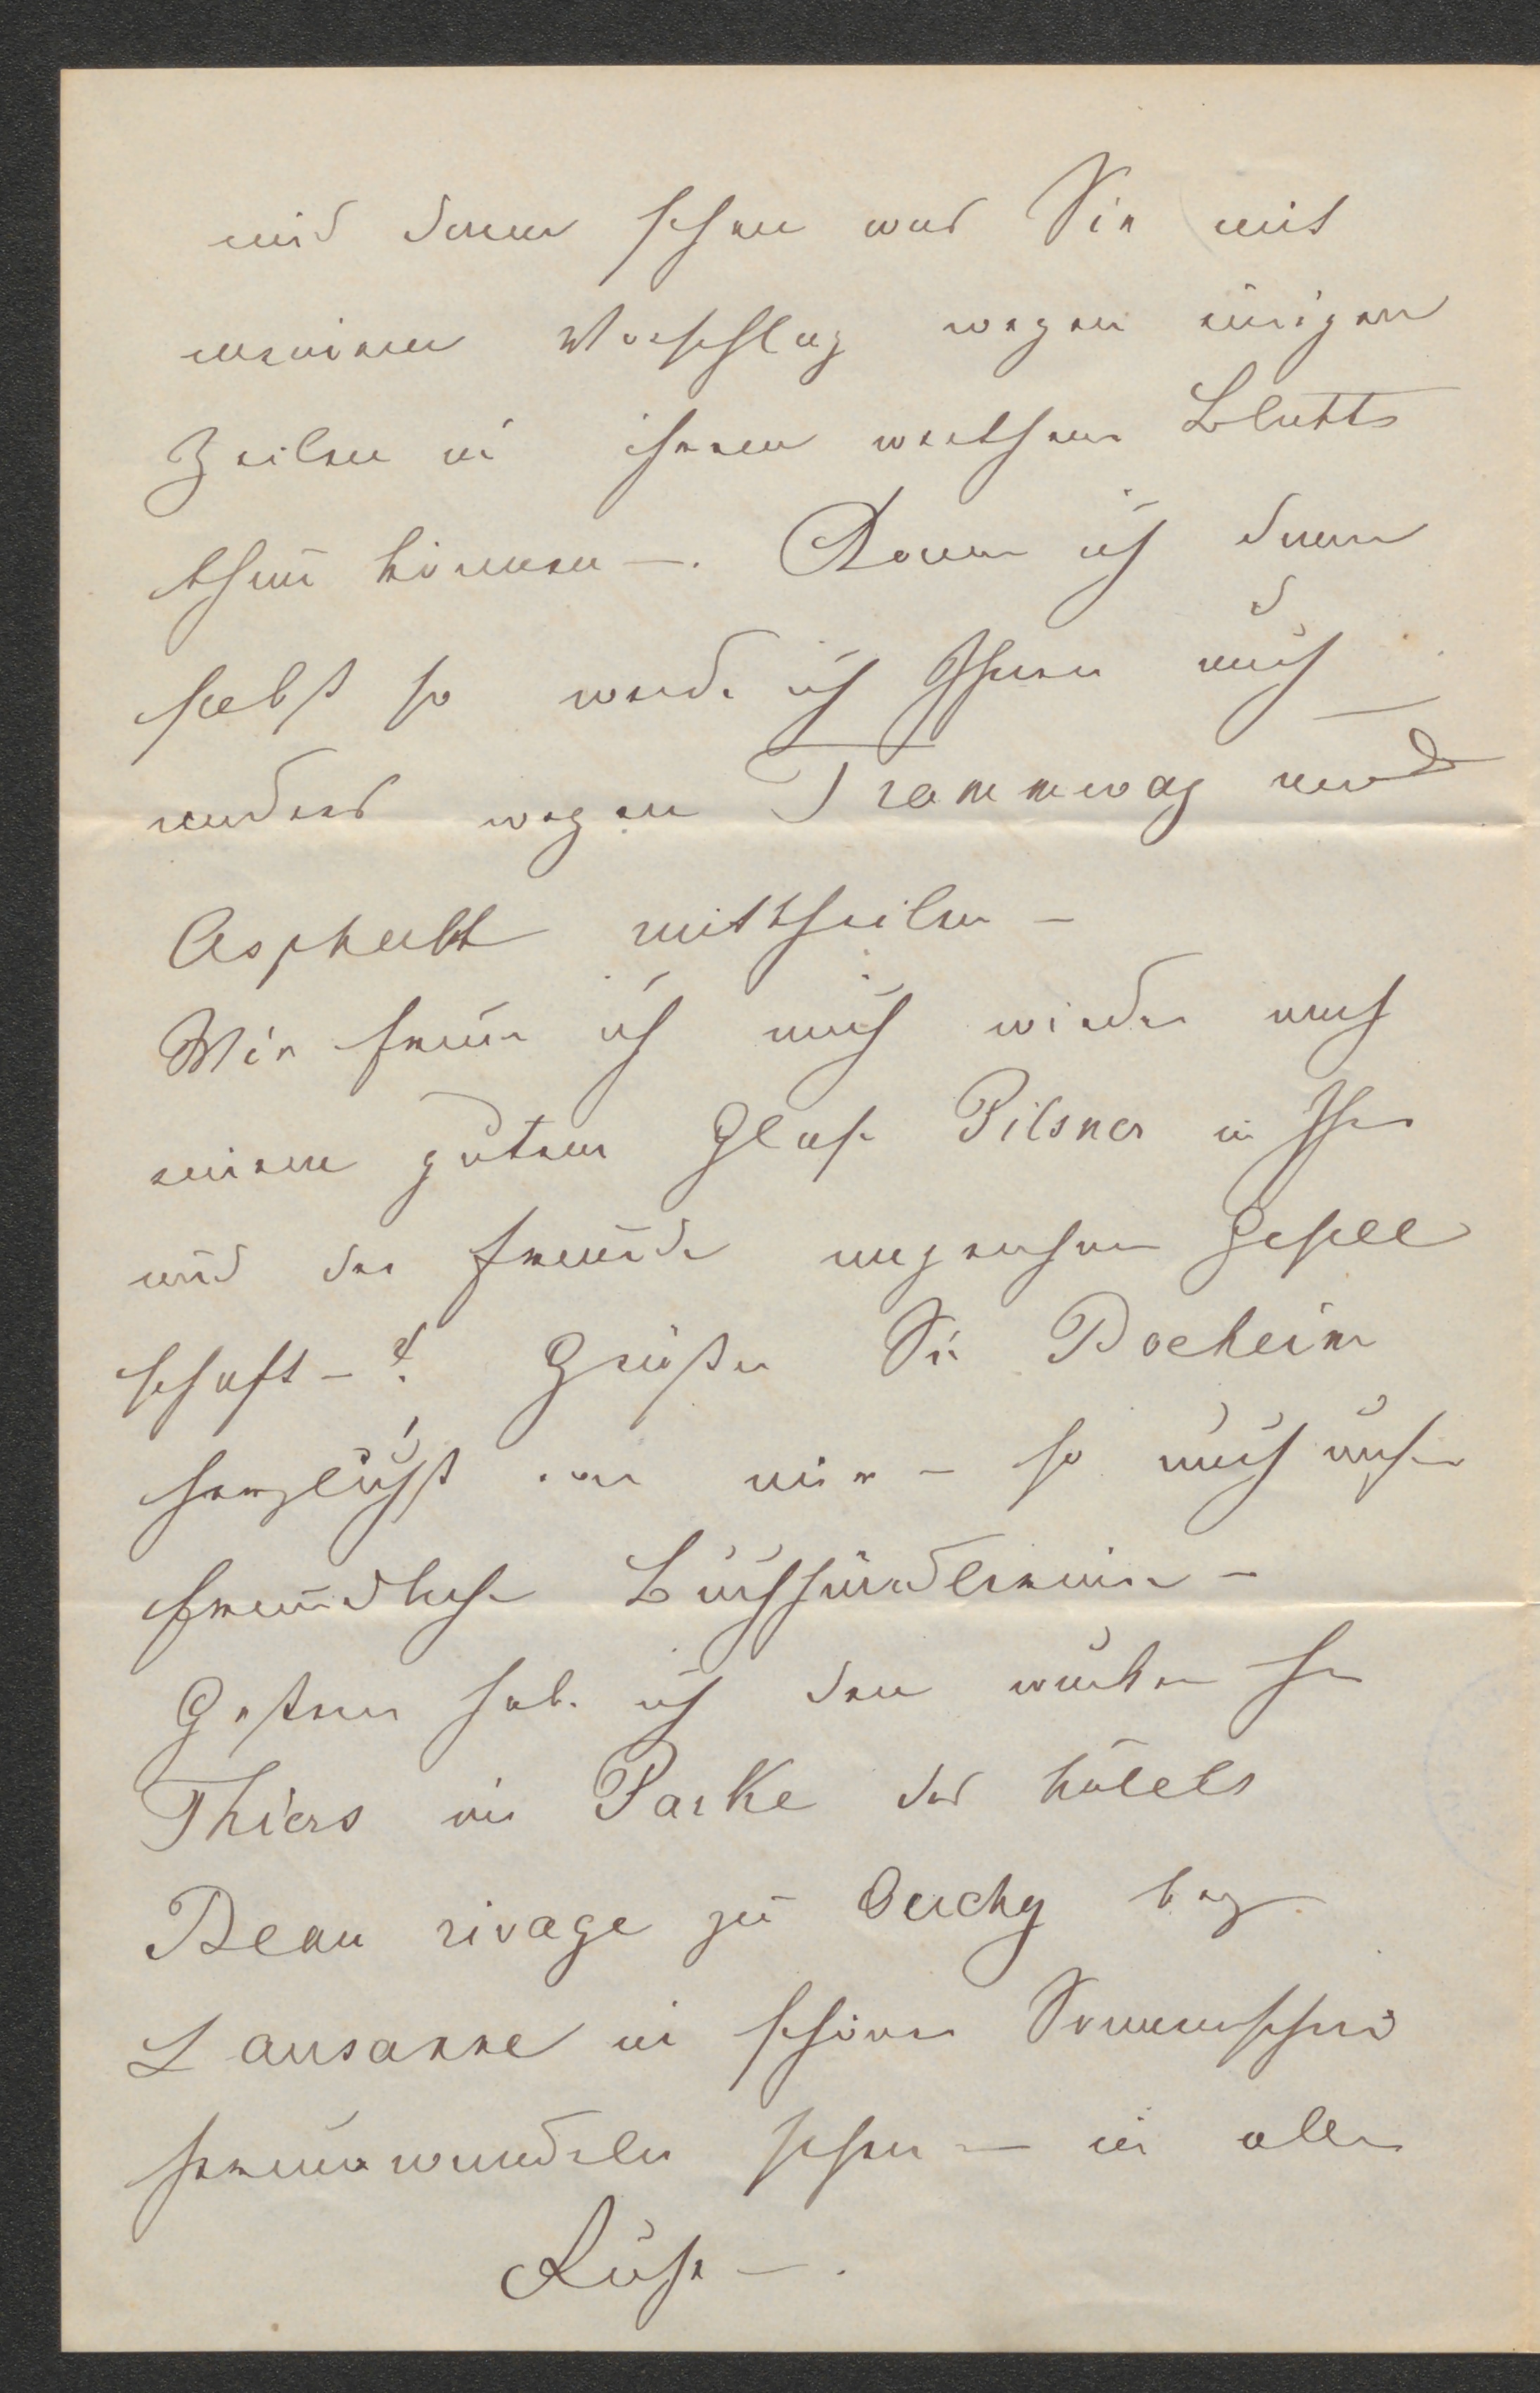 und dann sehen was Sie mit
meinem Vorschlag wegen einigen
Zeilen in ihrem werthen Blatte
thun können —. Komm ich dann
selbst so werde ich Ihnen auch
anders wegen Trammway und
Asphalt mittheilen —
Wie freue ich mich wieder auf
einem gutem Glase Pilsner in Ihr
und der Freunde angenehmen Gesell
schaft — ! Grüßen Sie
herzlichst von mir — so auch unsre
freundliche Buchhändlerinn —
Gestern habe ich den
Thiers im Parke des hôtels
Beau rivage zu Ouchy bey
Lausanne in schönen Sonnenschein
herumwandeln sehen — in aller
Ruhe —.